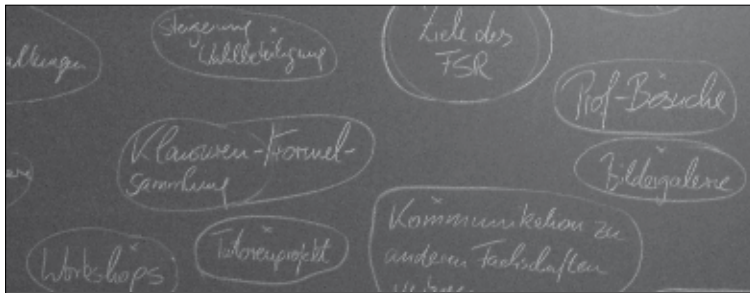 Steigerung
Wahlbeteiligung
Ziele des
FSR
Prof-Besuche
Klausuren-Formel-
sammlung
Bildergalerie
Workshops
Tutorenprojekt
Kommunikation zu
anderen Fachschaften